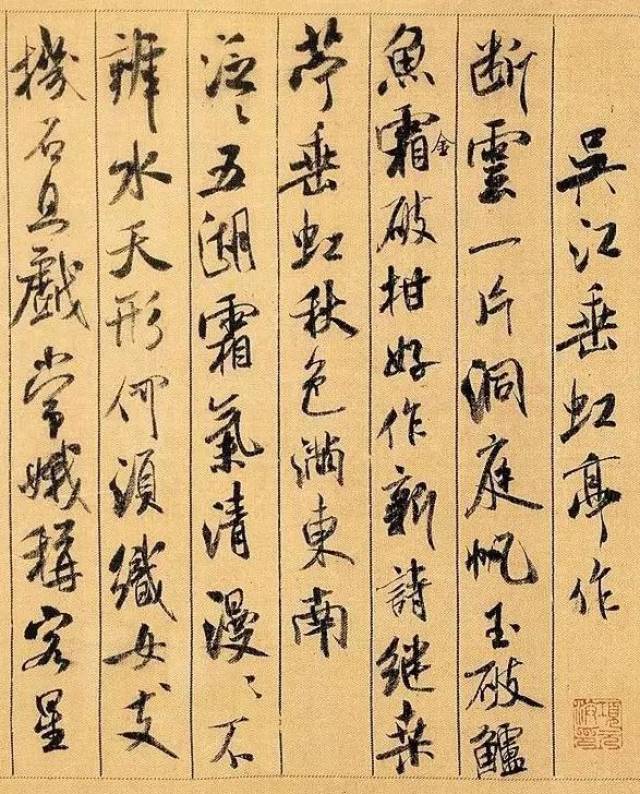 吳江垂虹亭作
断雲一片洞庭帆玉破鱸
魚霜金破柑好作新詩継桒
苧垂虹秋色滿東南
泛〻五湖霜氣清漫〻不
辨水天形何須織女支
機石且戲常娥稱客星